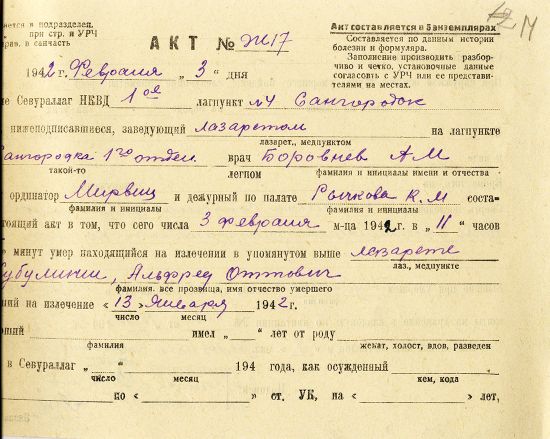 яется в подразделен.
при стр. и УРЧ
рав. в санчасть
АКТ № Ж17
Акт составляется в 5 экземплярах
Составляется по данным истории
болезни и формуляра.
Заполнение производить разбор-
чиво и четко, установочные данные
согласовать с УРЧ или ее представи-
телями на местах.
12 М
1942 г. Февраля „ 3 " дня
ие Севураллаг НКВД 1ое лагпункт №4 Сангородок
нижеподписавшиеся, заведующий лазаретом на лагпункте
лазарет, медпунктом
Сангородка 1го отдел. врач Боровнев А М
такой-то легпом фамилия и инициалы имени и отчества
ординатор Мирвиц и дежурный по палате Рычкова К. М соста-
фамилия и инициалы фамилия и инициалы
тоящий акт в том, что сего числа 3 февраля м-ца 1942 г. в „ 11 " часов
минут умер находящийся на излечении в упомянутом выше лазарете
лаз., медпункте
Альфред Оттович
фамилия. все прозвища, имя отчество умершего
ший на излечение « 13 » Января 1942 г.
число месяц
имел „ " лет от роду
фамилия женат, холост, вдов, разведен
в Севураллаг „ " 194 года, как осужденный
число месяц кем, кода
по < > ст. УК, на < > лет,